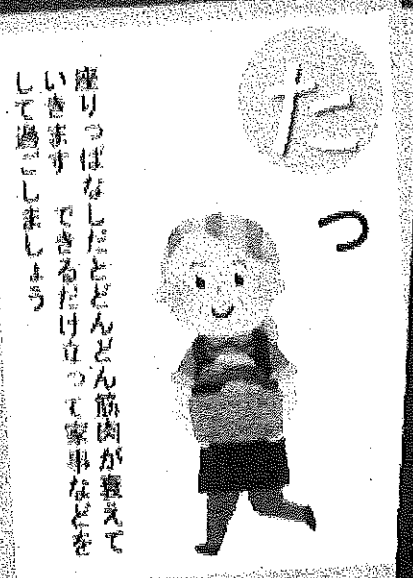 たつ
座りっぱなしだとどんどん筋肉が衰えて
いきます　できるだけ立って家事などを
して過ごしましょう